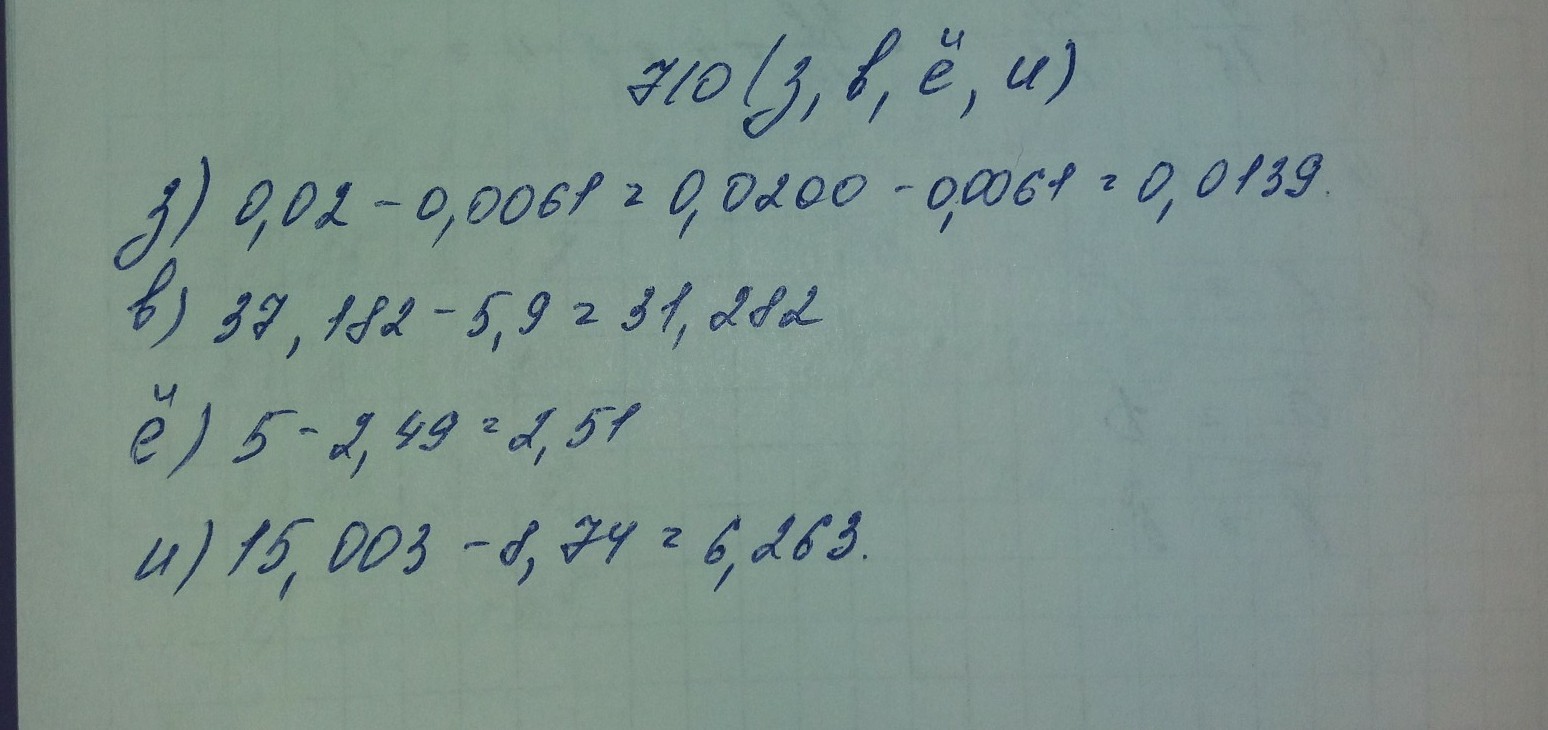 710 (з, в, ё, и)
з) 0,02 - 0,0061 = 0,0200 - 0,0061 = 0,0139.
в) 37,182 - 5,9 = 31,282
ё) 5 - 2,49 = 2,51
и) 15,003 - 8,74 = 6,263.